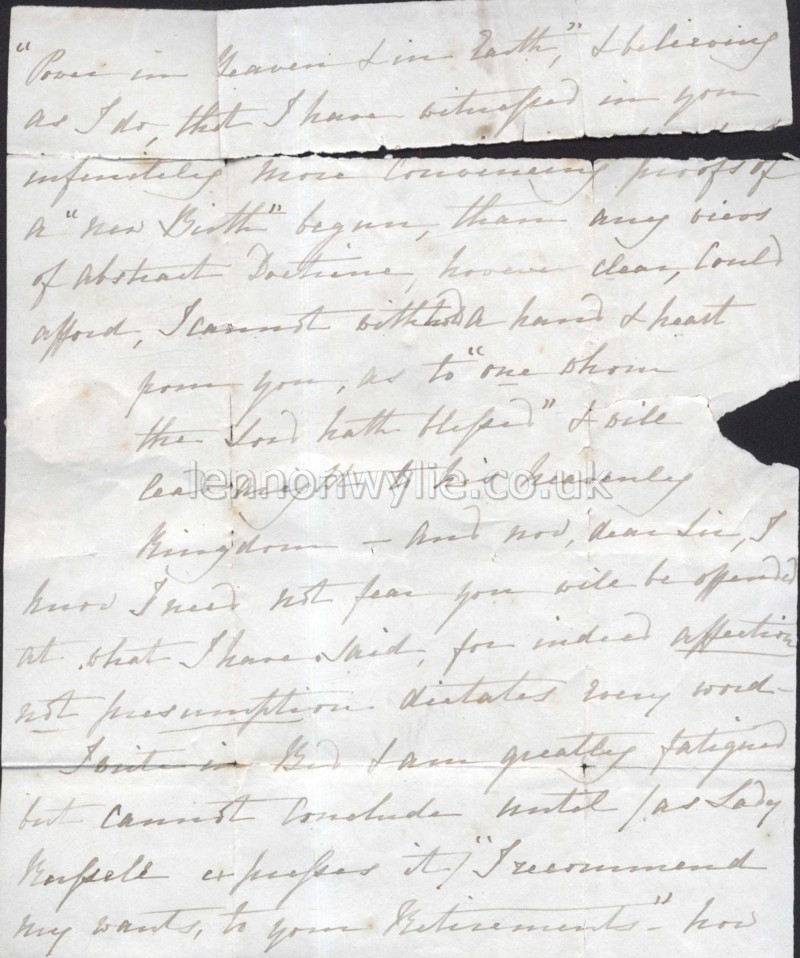 "Power in Heaven & in Earth," & believing
as I do, that I have witnessed in you
infinitely more convincing proofs of
a "new Birth" begun, than any views
of abstract Doctrine, however clear, Could
afford, I cannot withhold a hand & heart
from you, as to "one whom
the Lord hath blessed" & will
lead
lennonwylie.co.uk
to his heavenly
Kingdom – And now, dear Sir, I
know I need not fear you will be offended
at what I have said, for indeed affection
not presumption dictates every word –
I write in Bed & am greatly fatigued
but cannot Conclude until / as Lady
Russell expresses it / "I recommend
my wants, to your Retirements" – how